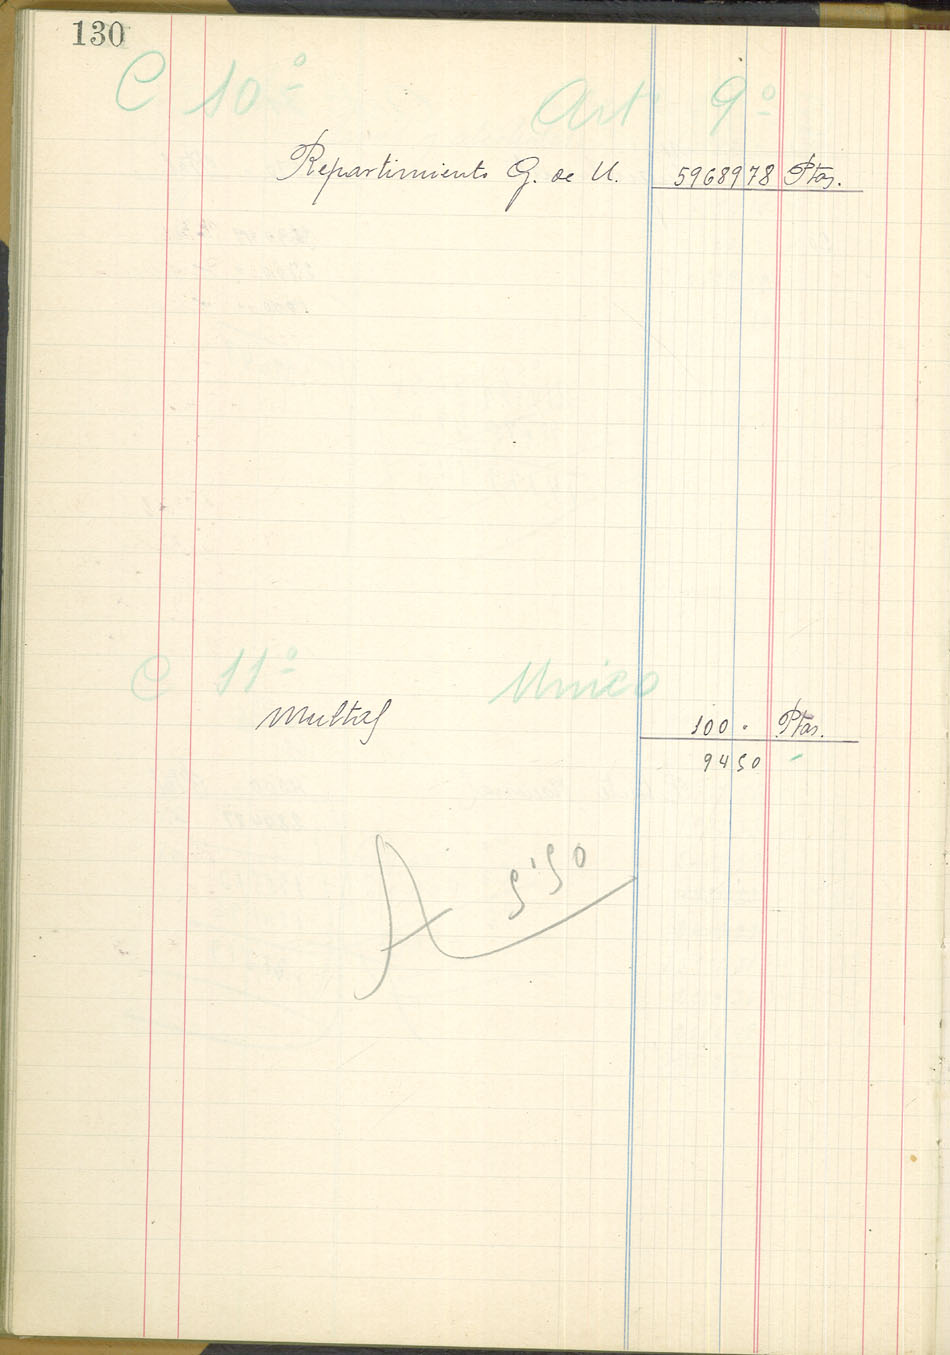 130
C 10º Art 9º
Repartimiento G. de U. 59689 78 Ptas.
C 11º Unico
Multas 100 . Ptas.
94 50
A 5'50